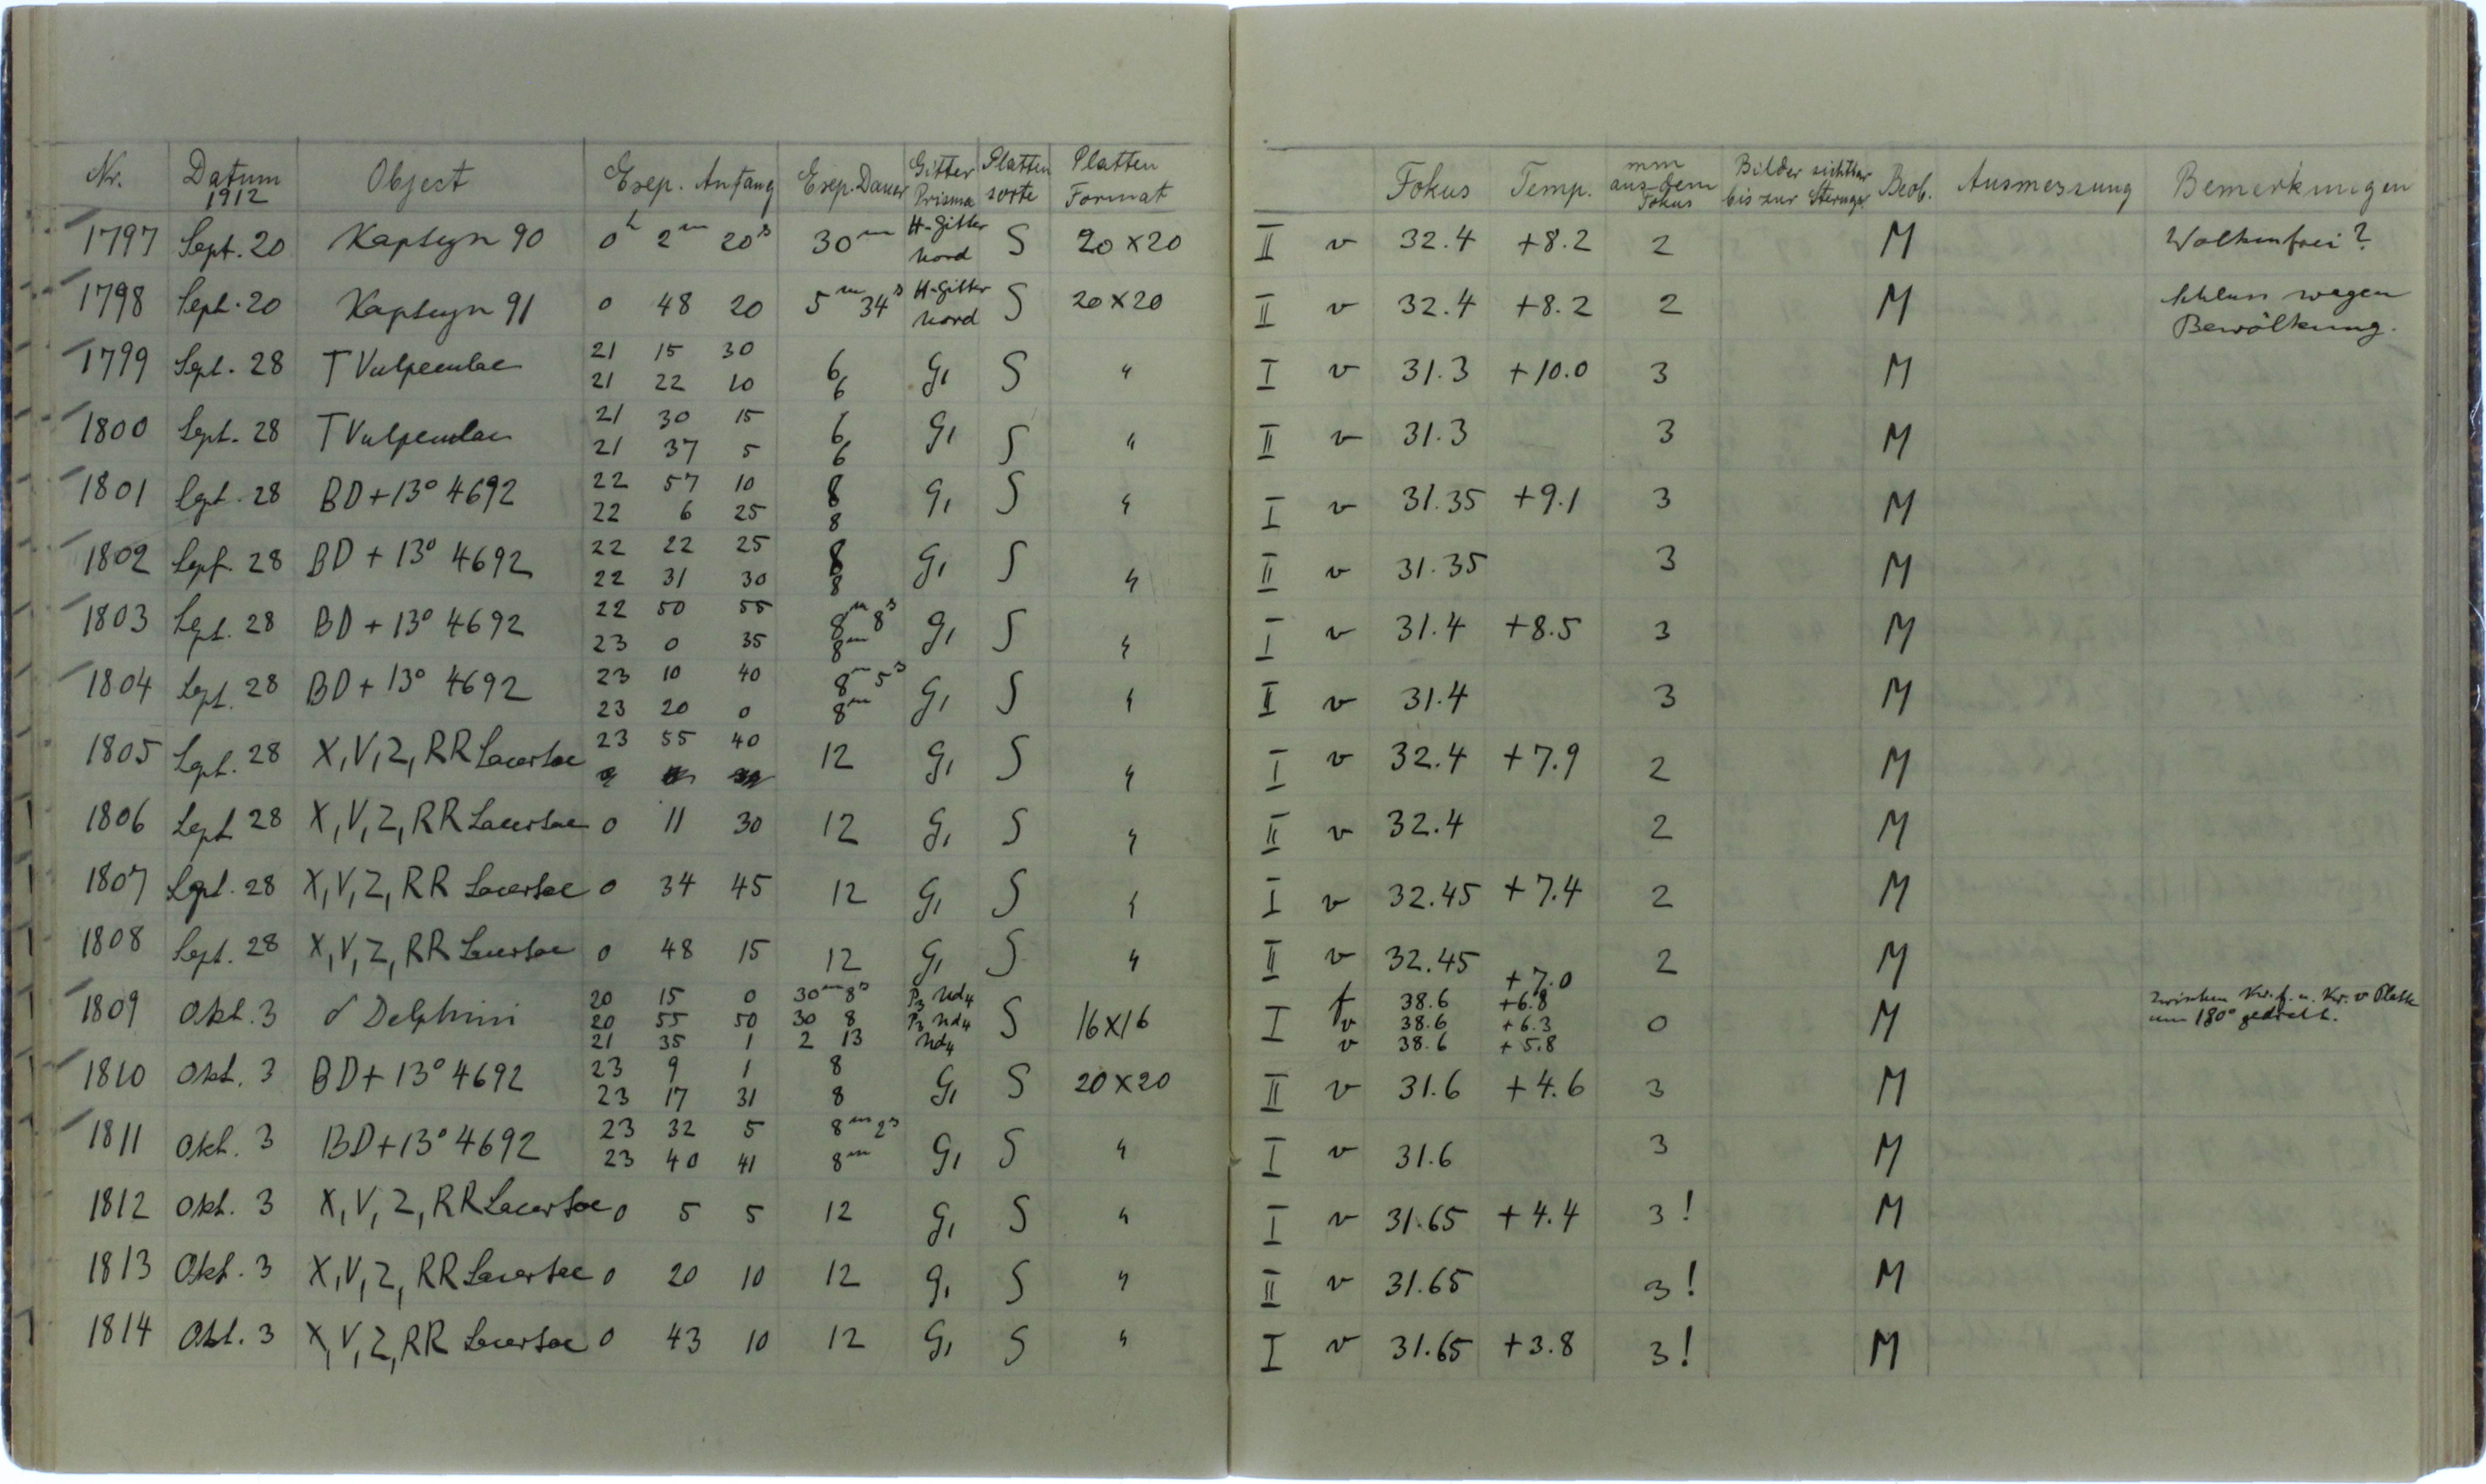 Nr. Datum 1912 Object Exp. Anfang Exp. Dauer Gitter Prisma Platten sorte Platten Format Fokus Temp. mm aus dem Fokus Bilder sichtbar bis zur Sterngr. Beob. Ausmessung Bemerkungen
1797 Sept. 20 Kapteyn 90 0h 2m 20s 30m H-Gitter Nord S 20×20 II v 32.4 +8.2 2 M Wolkenfrei?
1798 Sept. 20 Kapteyn 91 0 48 20 5m 34s H-Gitter Nord S 20×20 II v 32.4 +8.2 2 M Schluss wegen Bewölkung.
1799 Sept. 28 T Vulpeculae 21 15 30 6 G1 S " I v 31.3 +10.0 3 M
21 22 10 6
1800 Sept. 28 T Vulpeculae 21 30 15 6 G1 S " II v 31.3 3 M
21 37 5 6
1801 Sept. 28 BD+13° 4692 22 57 10 8 G1 S " I v 31.35 +9.1 3 M
22 6 25 8
1802 Sept. 28 BD+13° 4692 22 22 25 8 G1 S " II v 31.35 3 M
22 31 30 8
1803 Sept. 28 BD+13° 4692 22 50 55 8m 8s G1 S " I v 31.4 +8.5 3 M
23 0 35 8m
1804 Sept. 28 BD+13° 4692 23 10 40 8m 5s G1 S " II v 31.4 3 M
23 20 0 8m
1805 Sept. 28 X, V, Z, RR Lacertae 23 55 40 12 G1 S " I v 32.4 +7.9 2 M
1806 Sept 28 X, V, Z, RR Lacertae 0 11 30 12 G1 S " II v 32.4 2 M
1807 Sept. 28 X, V, Z, RR Lacertae 0 34 45 12 G1 S " I v 32.45 +7.4 2 M
1808 Sept. 28 X, V, Z, RR Lacertae 0 48 15 12 G1 S " II v 32.45 +7.0 2 M
1809 Okt. 3 δ Delphini 20 15 0 30m 8s P3 Nd4 S 16×16 I f 38.6 +6.8 0 M Zwischen Kr. f. u. Kr. v Platte um 180° gedreht.
20 55 50 30 8 P3 Nd4 v 38.6 +6.3
21 35 1 2 13 Nd4 v 38.6 +5.8
1810 Okt. 3 BD+13° 4692 23 9 1 8 G1 S 20×20 II v 31.6 +4.6 3 M
23 17 31 8
1811 Okt. 3 BD+13° 4692 23 32 5 8m 2s G1 S " I v 31.6 3 M
23 40 41 8m
1812 Okt. 3 X, V, Z, RR Lacertae 0 5 5 12 G1 S " I v 31.65 +4.4 3! M
1813 Okt. 3 X, V, Z, RR Lacertae 0 20 10 12 G1 S " II v 31.65 3! M
1814 Okt. 3 X, V, Z, RR Lacertae 0 43 10 12 G1 S " I v 31.65 +3.8 3! M